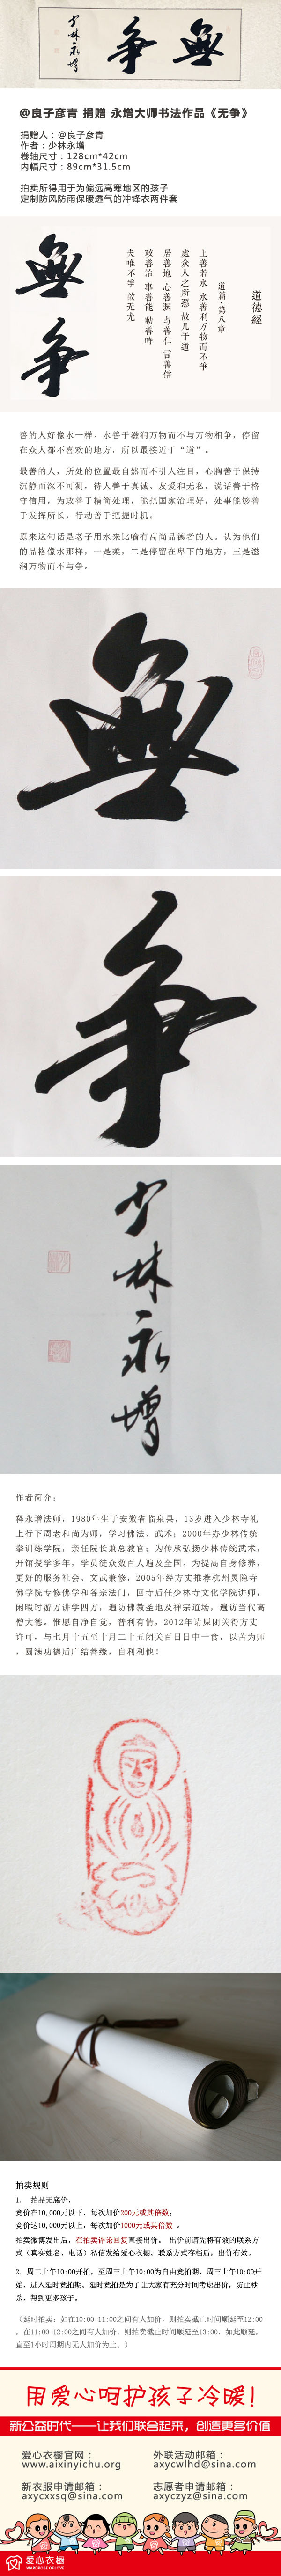 無争
少林永增
@良子彦青 捐赠 永增大师书法作品《无争》
捐赠人：@良子彦青
作者：少林永增
卷轴尺寸：128cm*42cm
内幅尺寸：89cm*31.5cm
拍卖所得用于为偏远高寒地区的孩子
定制防风防雨保暖透气的冲锋衣两件套
無争
道德經
道篇·第八章
上善若水 水善利万物而不争
處众人之所惡 故几于道
居善地 心善渊 与善仁 言善信
政善治 事善能 動善時
夫唯不争 故无尤
善的人好像水一样。水善于滋润万物而不与万物相争，停留
在众人都不喜欢的地方，所以最接近于“道”。
最善的人，所处的位置最自然而不引人注目，心胸善于保持
沉静而深不可测，待人善于真诚、友爱和无私，说话善于格
守信用，为政善于精简处理，能把国家治理好，处事能够善
于发挥所长，行动善于把握时机。
原来这句话是老子用水来比喻有高尚品德者的人。认为他们
的品格像水那样，一是柔，二是停留在卑下的地方，三是滋
润万物而不与争。
無
争
少林永增
作者简介：
释永增法师，1980年生于安徽省临泉县，13岁进入少林寺礼
上行下周老和尚为师，学习佛法、武术；2000年办少林传统
拳训练学院，亲任院长兼总教官；为传承弘扬少林传统武术，
开馆授学多年，学员徒众数百人遍及全国。为提高自身修养，
更好的服务社会、文武兼修，2005年经方丈推荐杭州灵隐寺
佛学院专修佛学和各宗法门，回寺后任少林寺文化学院讲师，
闲暇时游方讲学四方，遍访佛教圣地及禅宗道场，遍访当代高
僧大德。惟愿自净自觉，普利有情，2012年请原闭关得方丈
许可，与七月十五至十月二十五闭关百日日中一食，以苦为师
，圆满功德后广结善缘，自利利他！
拍卖规则
1. 拍品无底价，
竞价在10,000元以下，每次加价200元或其倍数；
竞价达10,000元以上，每次加价1000元或其倍数 。
拍卖微博发出后，在拍卖评论回复直接出价。 出价前请先将有效的联系方
式（真实姓名、电话）私信发给爱心衣橱。联系方式存档后，出价有效。
2. 周二上午10:00开拍，至周三上午10:00为自由竞拍期，周三上午10:00开
始，进入延时竞拍期。延时竞拍是为了让大家有充分时间考虑出价，防止秒
杀，帮到更多孩子。
（延时拍卖：如在10:00-11:00之间有人加价，则拍卖截止时间顺延至12:00
。在11:00-12:00之间有人加价，则拍卖截止时间顺延至13:00，如此顺延，
直至1小时周期内无人加价为止。）
用爱心呵护孩子冷暖！
新公益时代——让我们联合起来，创造更多价值
爱心衣橱官网：
www.aixinyichu.org
外联活动邮箱：
axycwlhd@sina.com
新衣服申请邮箱：
axycxxsq@sina.com
志愿者申请邮箱：
axyczyz@sina.com
爱心衣橱
WARDROBE OF LOVE